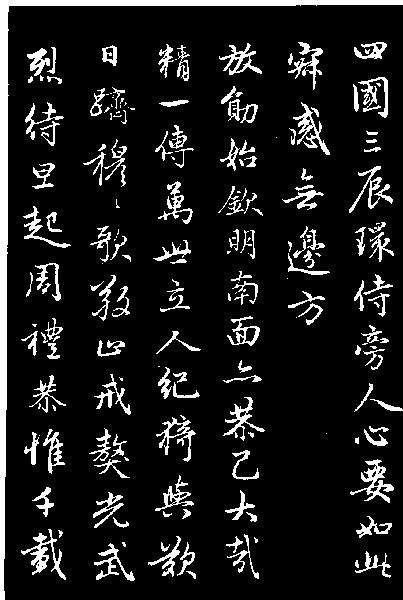 四國三辰環侍旁人心要如此
寂感無邊方
放勛始欽明南面亦恭己大哉
精一傳萬世立人紀猗與歎
日躋穆〻歌敬止戒獒光武
烈待旦起周禮恭惟千載